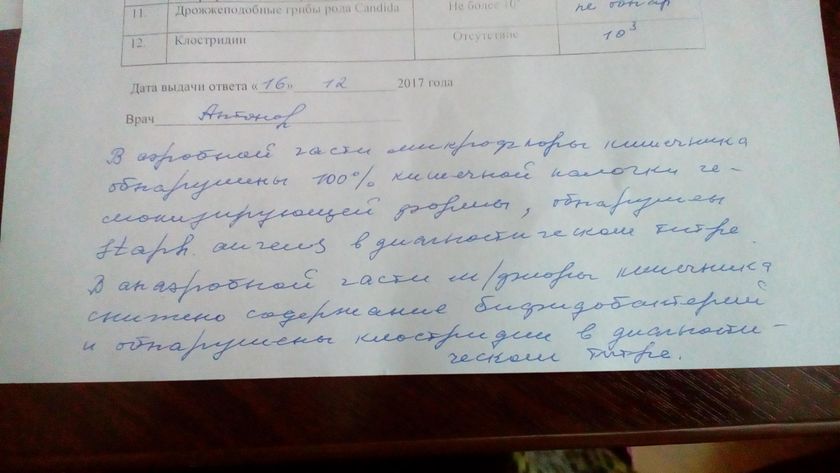 11. Дрожжеподобные грибы рода Candida Не более 10 не обнар
12. Клостридии Отсутствие 10³
Дата выдачи ответа «16» 12 2017 года
Врач Антонов
В аэробной части микрофлоры кишечника
обнаружены 100% кишечной палочки ге-
молизирующей формы, обнаружен
Staph. aureus в диагностическом титре.
В анаэробной части м/флоры кишечника
снижено содержание бифидобактерий
и обнаружены клостридии в диагности-
ческом титре.